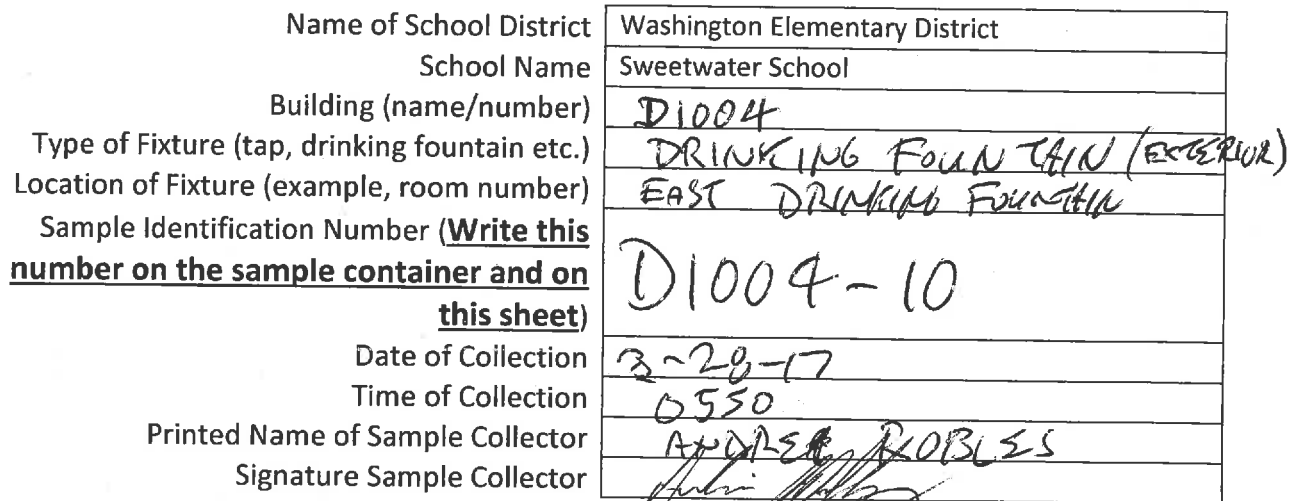 Name of School District Washington Elementary District
School Name Sweetwater School
Building (name/number) D1004
Type of Fixture (tap, drinking fountain etc.) DRINKING FOUNTAIN (EXTERIOR)
Location of Fixture (example, room number) EAST DRINKING FOUNTAIN
Sample Identification Number (Write this
number on the sample container and on
this sheet) D1004-10
Date of Collection 3-28-17
Time of Collection 0550
Printed Name of Sample Collector ROBLES
Signature Sample Collector